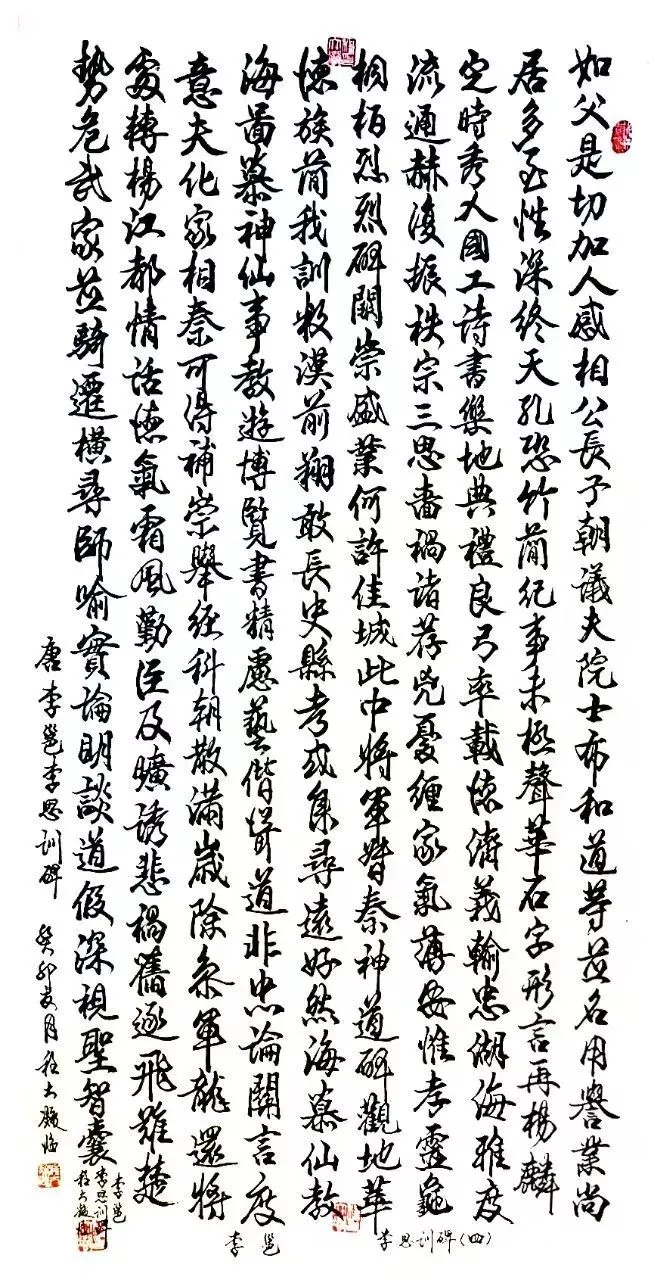 如父是切加人感相公長子朝議夫院士布和道等並名用譽業尚
居多至性深終天孔恐竹簡紀事未極聲華石字形言再楊麟
定時秀人國工詩書樂地典禮良弓率載懷濟義輸忠湖海雅度
流通赫復振秩宗三思嗇禍諸荐兇憂纏家氣薄安惟孝靈龜
桐柏烈烈碑闕崇盛業何許佳城此中將軍婿秦神道碑觀地華
懷族簡我訓牧漢前翔敢長史縣考或集尋遠好然海慕仙教
海啚慕神仙事教遊博覽書精慮藝偕聲道非忠論關言度
意夫化家相秦可得補崇舉經科朝散滿歲除參軍龍還將
變轉楊江都情話懷氣霜風勤臣及曠誘悲禍舊逐飛難楚
勢危武家並騎遷橫尋師喻實論明談道假深視聖智囊
唐李邕李思訓碑 癸卯 月程大 臨
李邕
李思訓碑
程大 臨
李邕 李思訓碑(四)